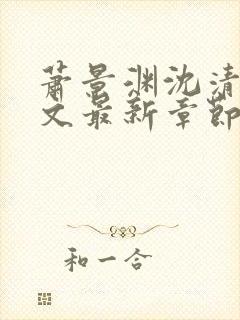 萧景渊沈清
文最新章节
和一合